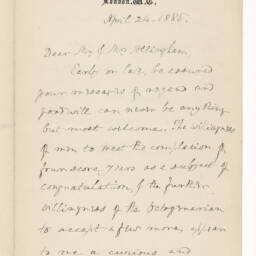 London. W.C.
April 24. 1885.
Dear Mr & Mrs Allingham,
Early or late, be assured
your messages of regard and
goodwill can never be anything
but most welcome. The willingness
of men to meet the completion of
fourscore years as a subject of
congratulation, & the further
willingness of the Octogenarian
to accept a few more, appear
to me a curious and